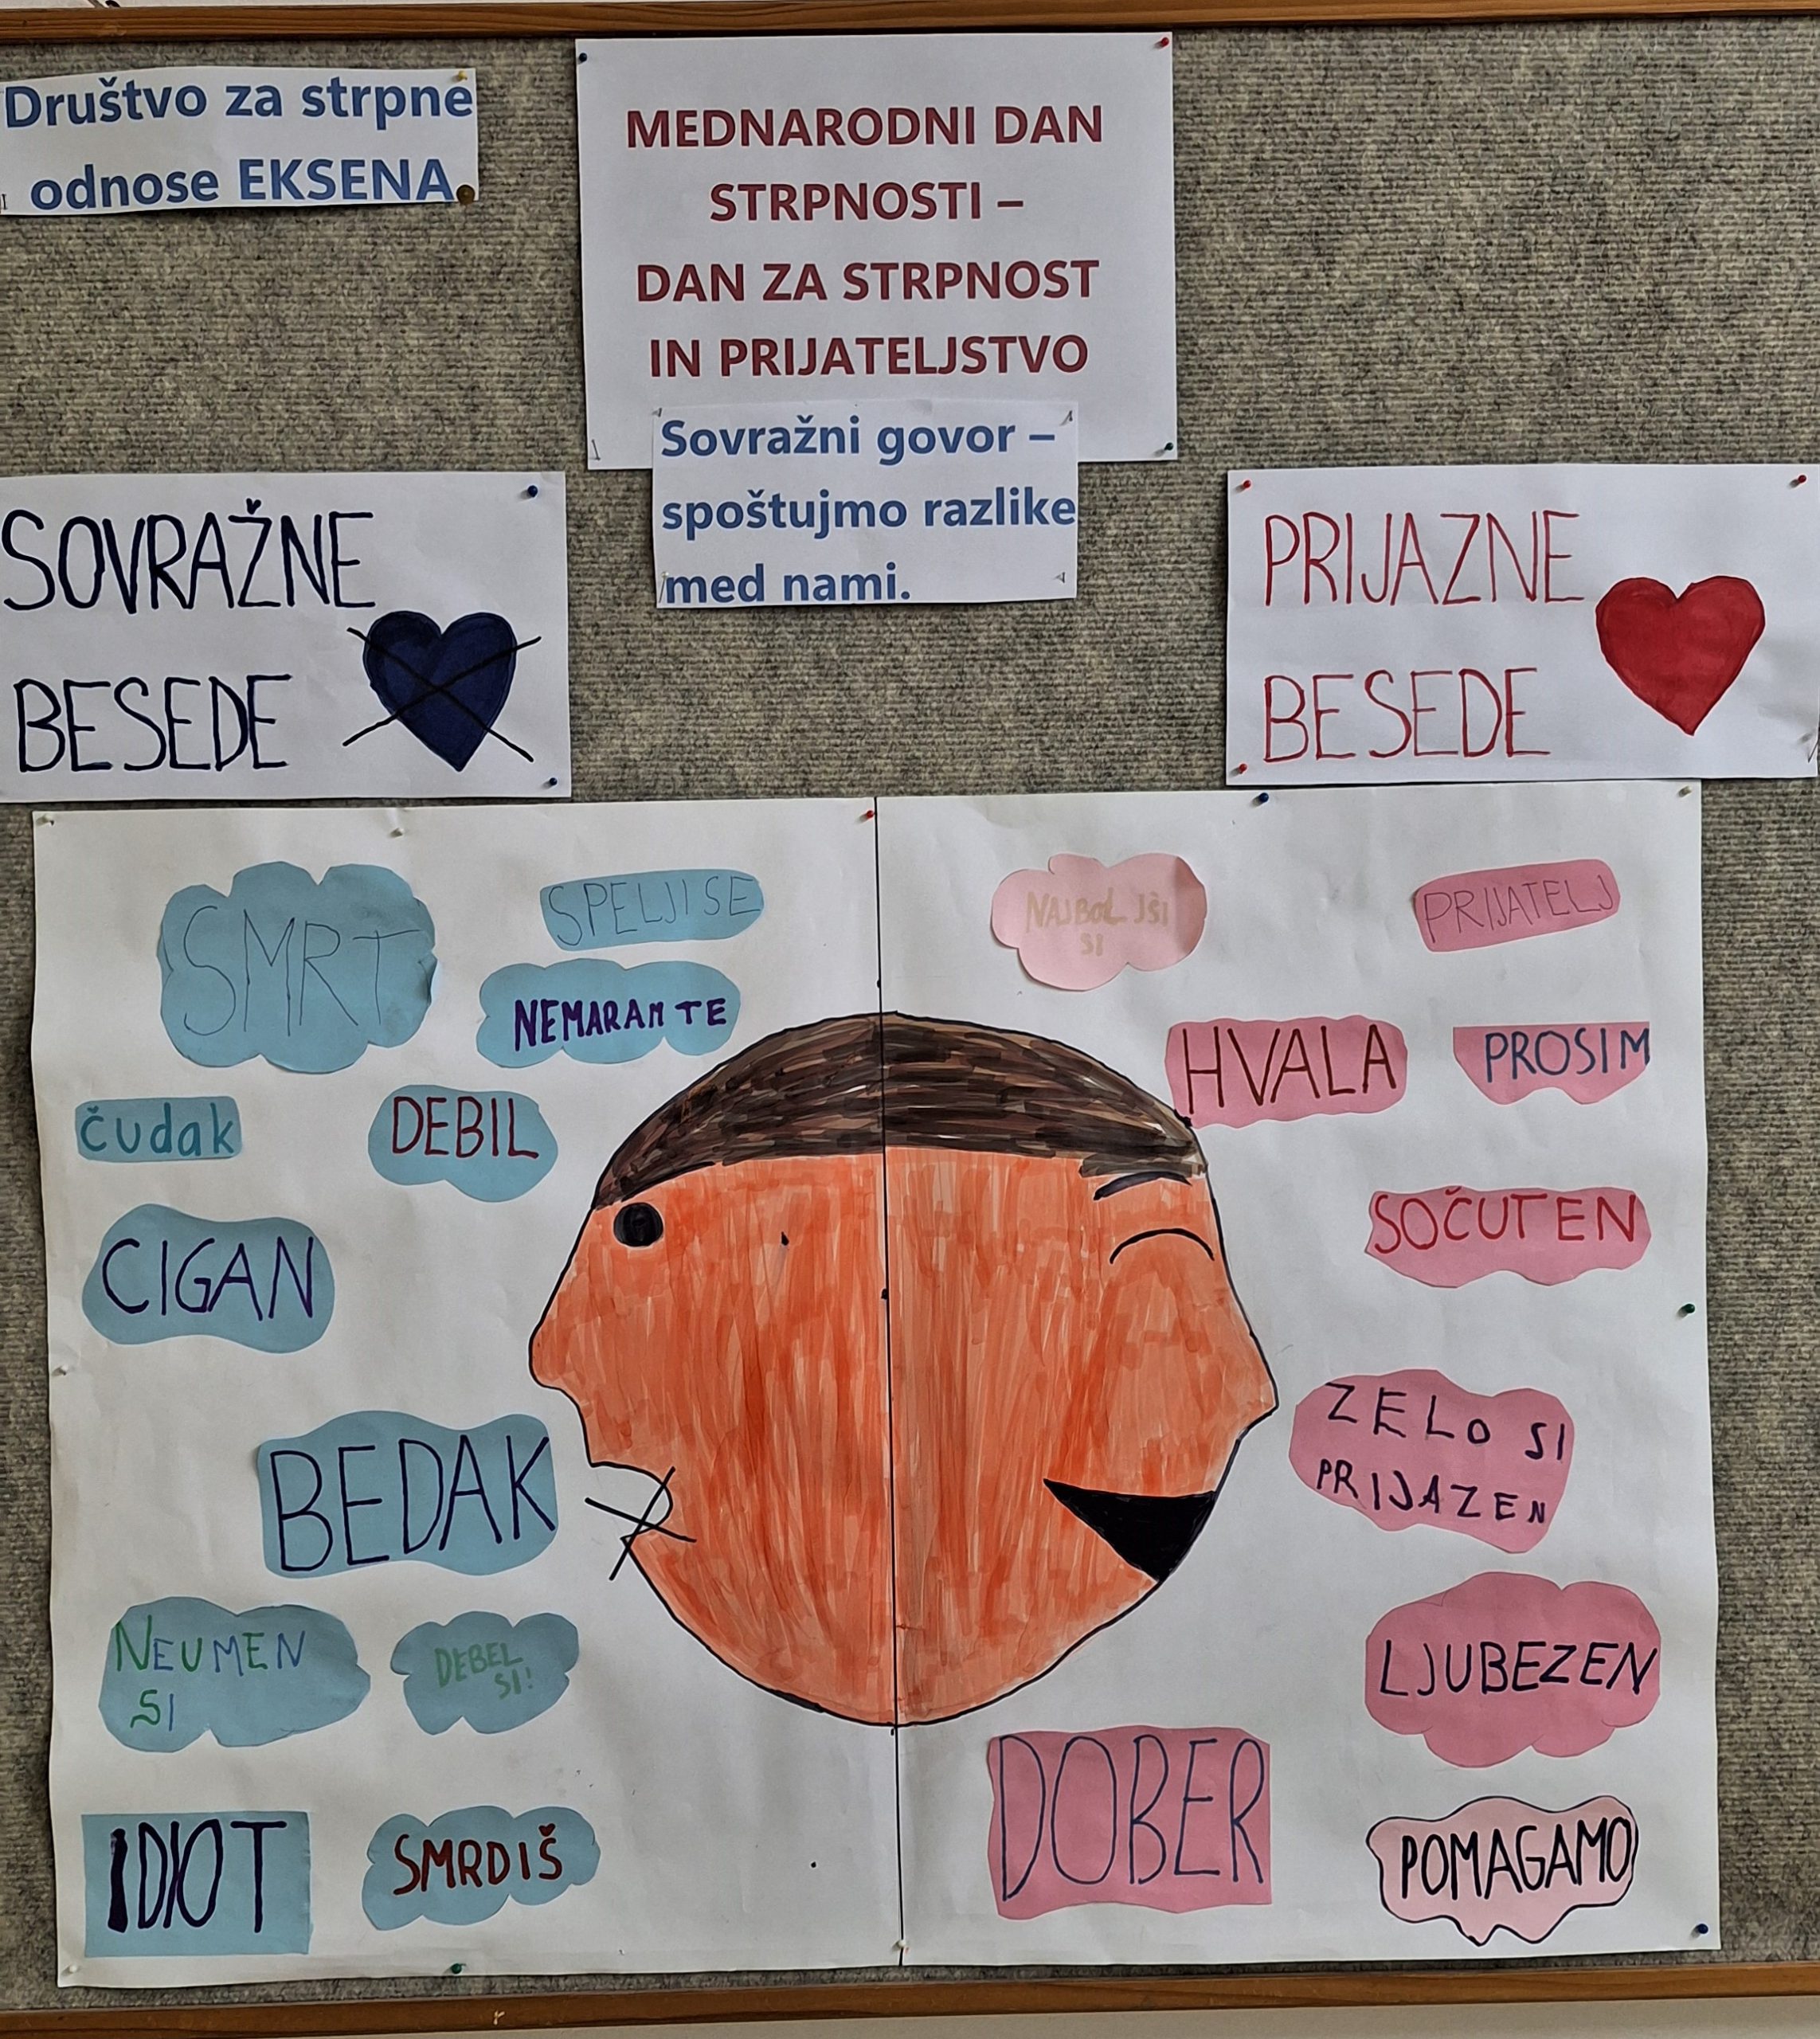 Društvo za strpne
odnose EKSENA.
MEDNARODNI DAN
STRPNOSTI –
DAN ZA STRPNOST
IN PRIJATELJSTVO
Sovražni govor –
spoštujmo razlike
med nami.
SOVRAŽNE
BESEDE
PRIJAZNE
BESEDE
SMRT
SPELJI SE
NEMARAM TE
čudak
DEBIL
CIGAN
BEDAK
NEUMEN
SI
DEBEL
SI!
IDIOT
SMRDIŠ
NAJBOLJŠI
SI
PRIJATELJ
HVALA
PROSIM
SOČUTEN
ZELO SI
PRIJAZEN
LJUBEZEN
DOBER
POMAGAMO